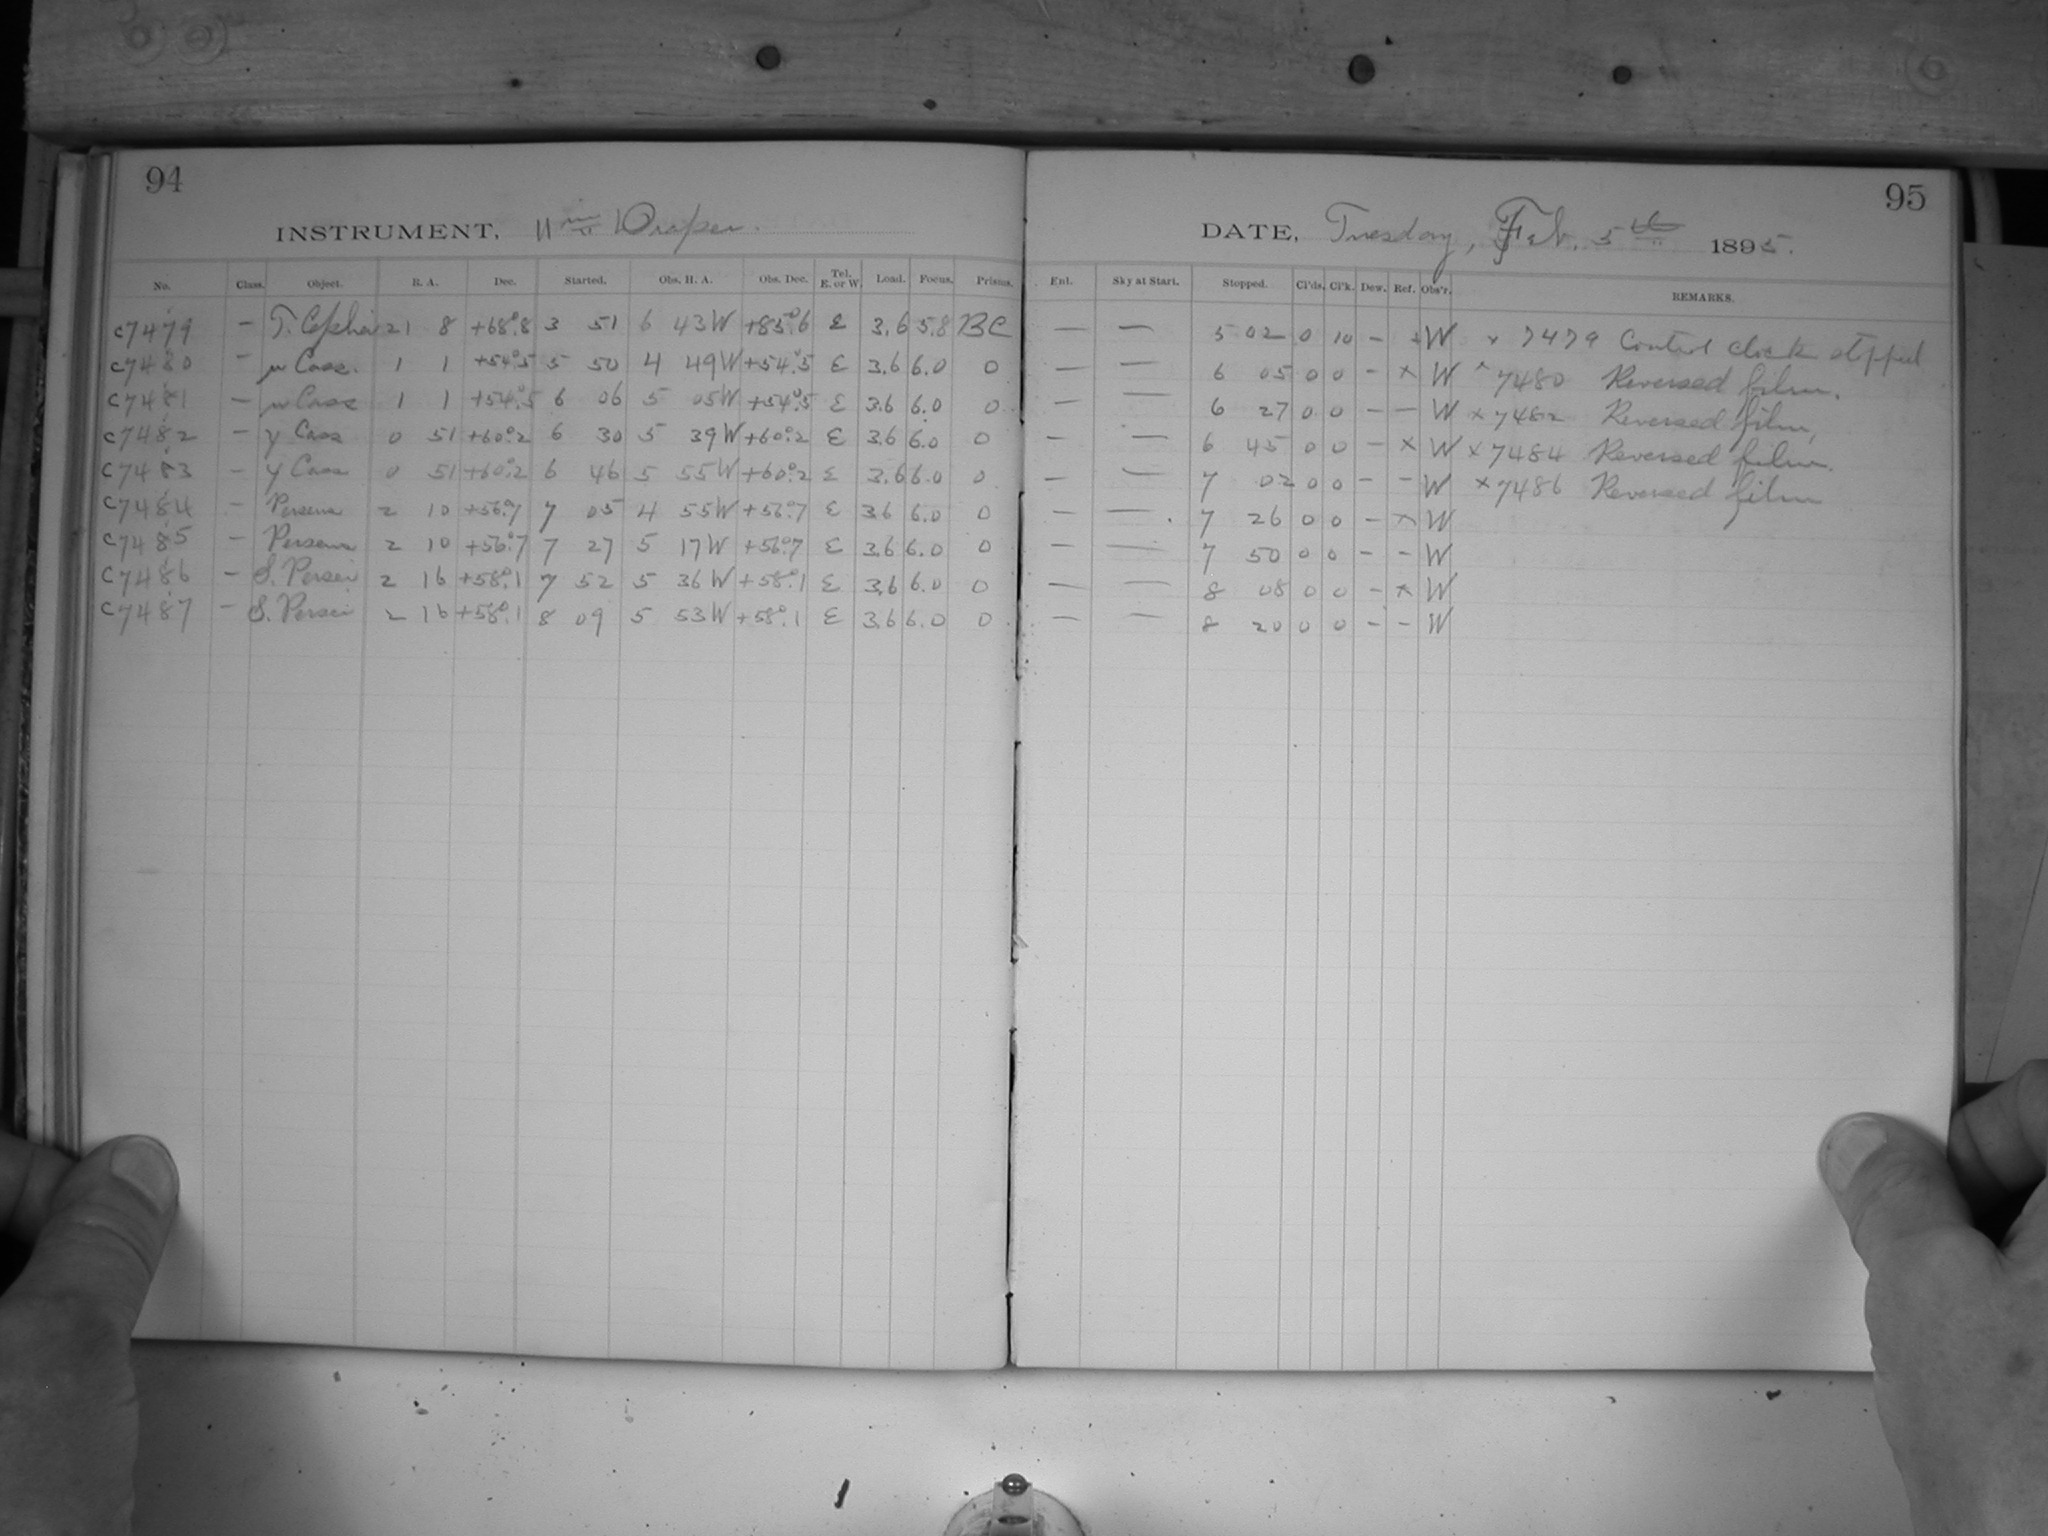 94
INSTRUMENT, 11 in Draper.
No. Class. Object. R. A. Dec. Started. Obs. H. A. Obs. Dec. Tel. E. or W. Load. Focus. Prisms.
C7479 — T. Cephei 21 8 +68°.8 3 51 6 43W +85°.6 E 3.6 5.8 BC
C7480 — μ Cass. 1 1 +54°.5 5 50 4 49W +54°.5 E 3.6 6.0 0
C7481 — μ Cass 1 1 +54°.5 6 06 5 05W +54°.5 E 3.6 6.0 0
C7482 — γ Cass 0 51 +60°.2 6 30 5 39W +60°.2 E 3.6 6.0 0
C7483 — γ Cass 0 51 +60°.2 6 46 5 55W +60°.2 E 3.6 6.0 0
C7484 — Perseus 2 10 +56°.7 7 05 4 55W +56°.7 E 3.6 6.0 0
C7485 — Perseus 2 10 +56°.7 7 27 5 17W +56°.7 E 3.6 6.0 0
C7486 — S. Persei 2 16 +58°.1 7 52 5 36W +58°.1 E 3.6 6.0 0
C7487 — S. Persei 2 16 +58°.1 8 09 5 53W +58°.1 E 3.6 6.0 0
95
DATE, Tuesday, Feb. 5th 1895.
Enl. Sky at Start. Stopped. Cl'ds. Cl'k. Dew. Ref. Obs'r. REMARKS.
— — 5 02 0 10 – + W × 7479 Control clock stopped
— — 6 05 0 0 – × W × 7480 Reversed film.
— — 6 27 0 0 – – W × 7482 Reversed film,
— — 6 45 0 0 – × W × 7484 Reversed film.
— — 7 02 0 0 – – W × 7486 Reversed film
— — 7 26 0 0 – × W
— — 7 50 0 0 – – W
— — 8 08 0 0 – × W
— — 8 20 0 0 – – W